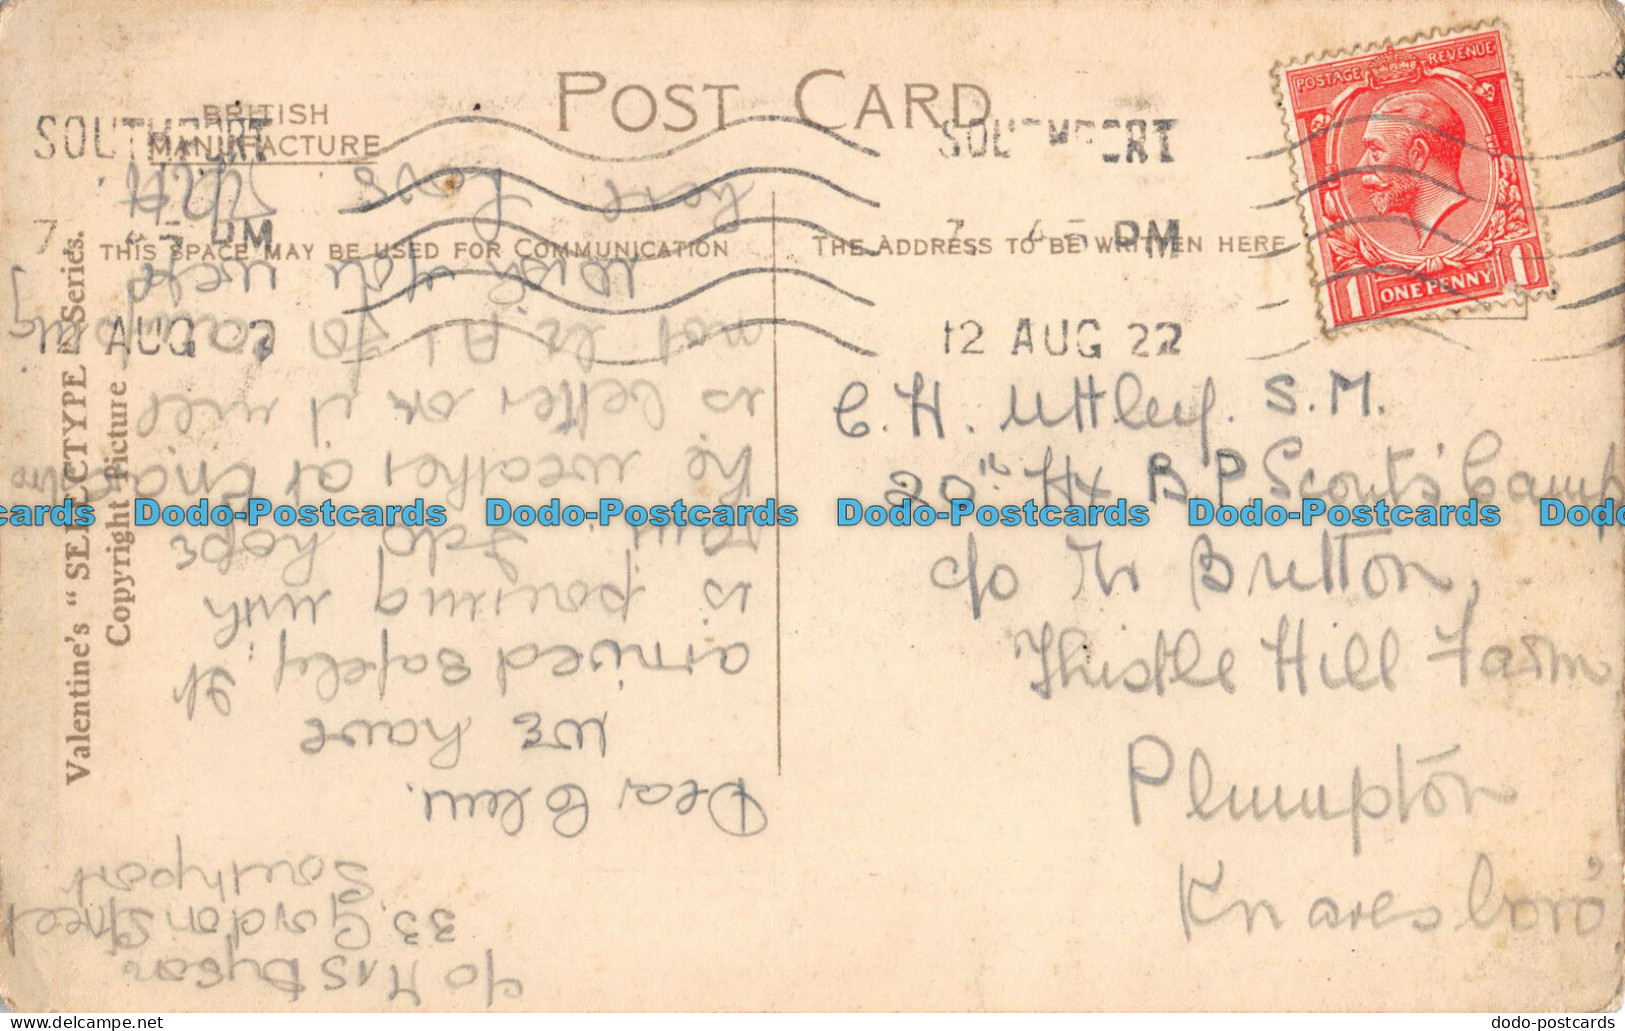 POST CARD
BRITISH
MANUFACTURE
THIS SPACE MAY BE USED FOR COMMUNICATION
THE ADDRESS TO BE WRITTEN HERE
Valentine's "SELECTYPE" Series.
Copyright Picture
SOUTHPORT
7 45 PM
12 AUG 22
SOUTHPORT
7 45 PM
12 AUG 22
POSTAGE REVENUE
1 ONE PENNY 1
C. H. Uttley. S.M.
20th Hx B P Scouts' Camp
c/o Mr Britton,
Thistle Hill Farm
Plumpton
Knaresboro'
c/o Mrs Dyson
33, Gordon Street
Southport
Dear Clem.
We have
arrived safely. It
is pouring with
rain. I do hope
the weather at
is better or it will
not be A1 for camping
Wish you were
here Love
Dodo-Postcards Dodo-Postcards Dodo-Postcards Dodo-Postcards
dodo-postcards